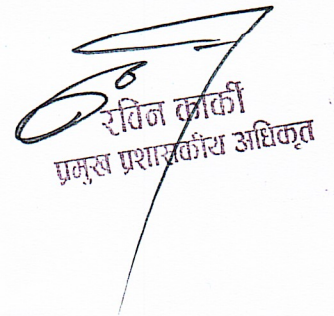 रविन कार्की
प्रमुख प्रशासकीय अधिकृत